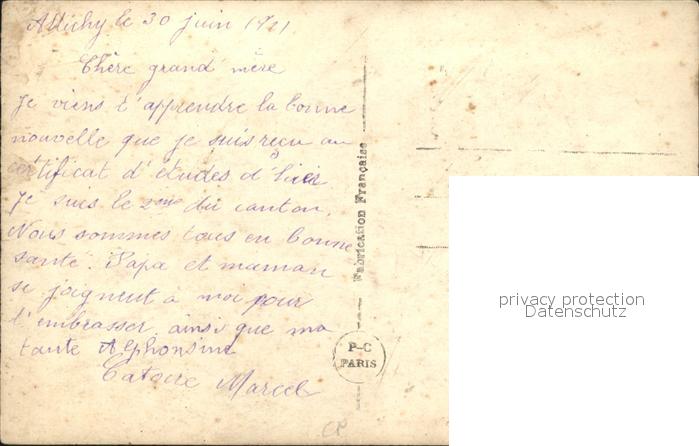 Attichy le 30 juin 1921
Chère grand mère
Je viens t'apprendre la bonne
nouvelle que je suis reçu au
certificat d'études d'hier
Je suis le 2me du canton.
Nous sommes tous en bonne
santé. Papa et maman
se joignent à moi pour
t'embrasser ainsi que ma
tante Alphonsine
Catoire Marcel
Fabrication Française
P-C
PARIS
CP
privacy protection
Datenschutz